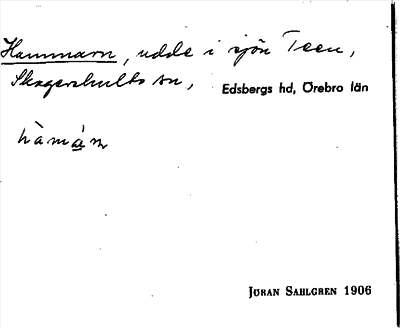 Hammarn, udde i sjön Teen,
Skagershults sn, Edsbergs hd, Örebro län
hàmán
JÖRAN SAHLGREN 1906